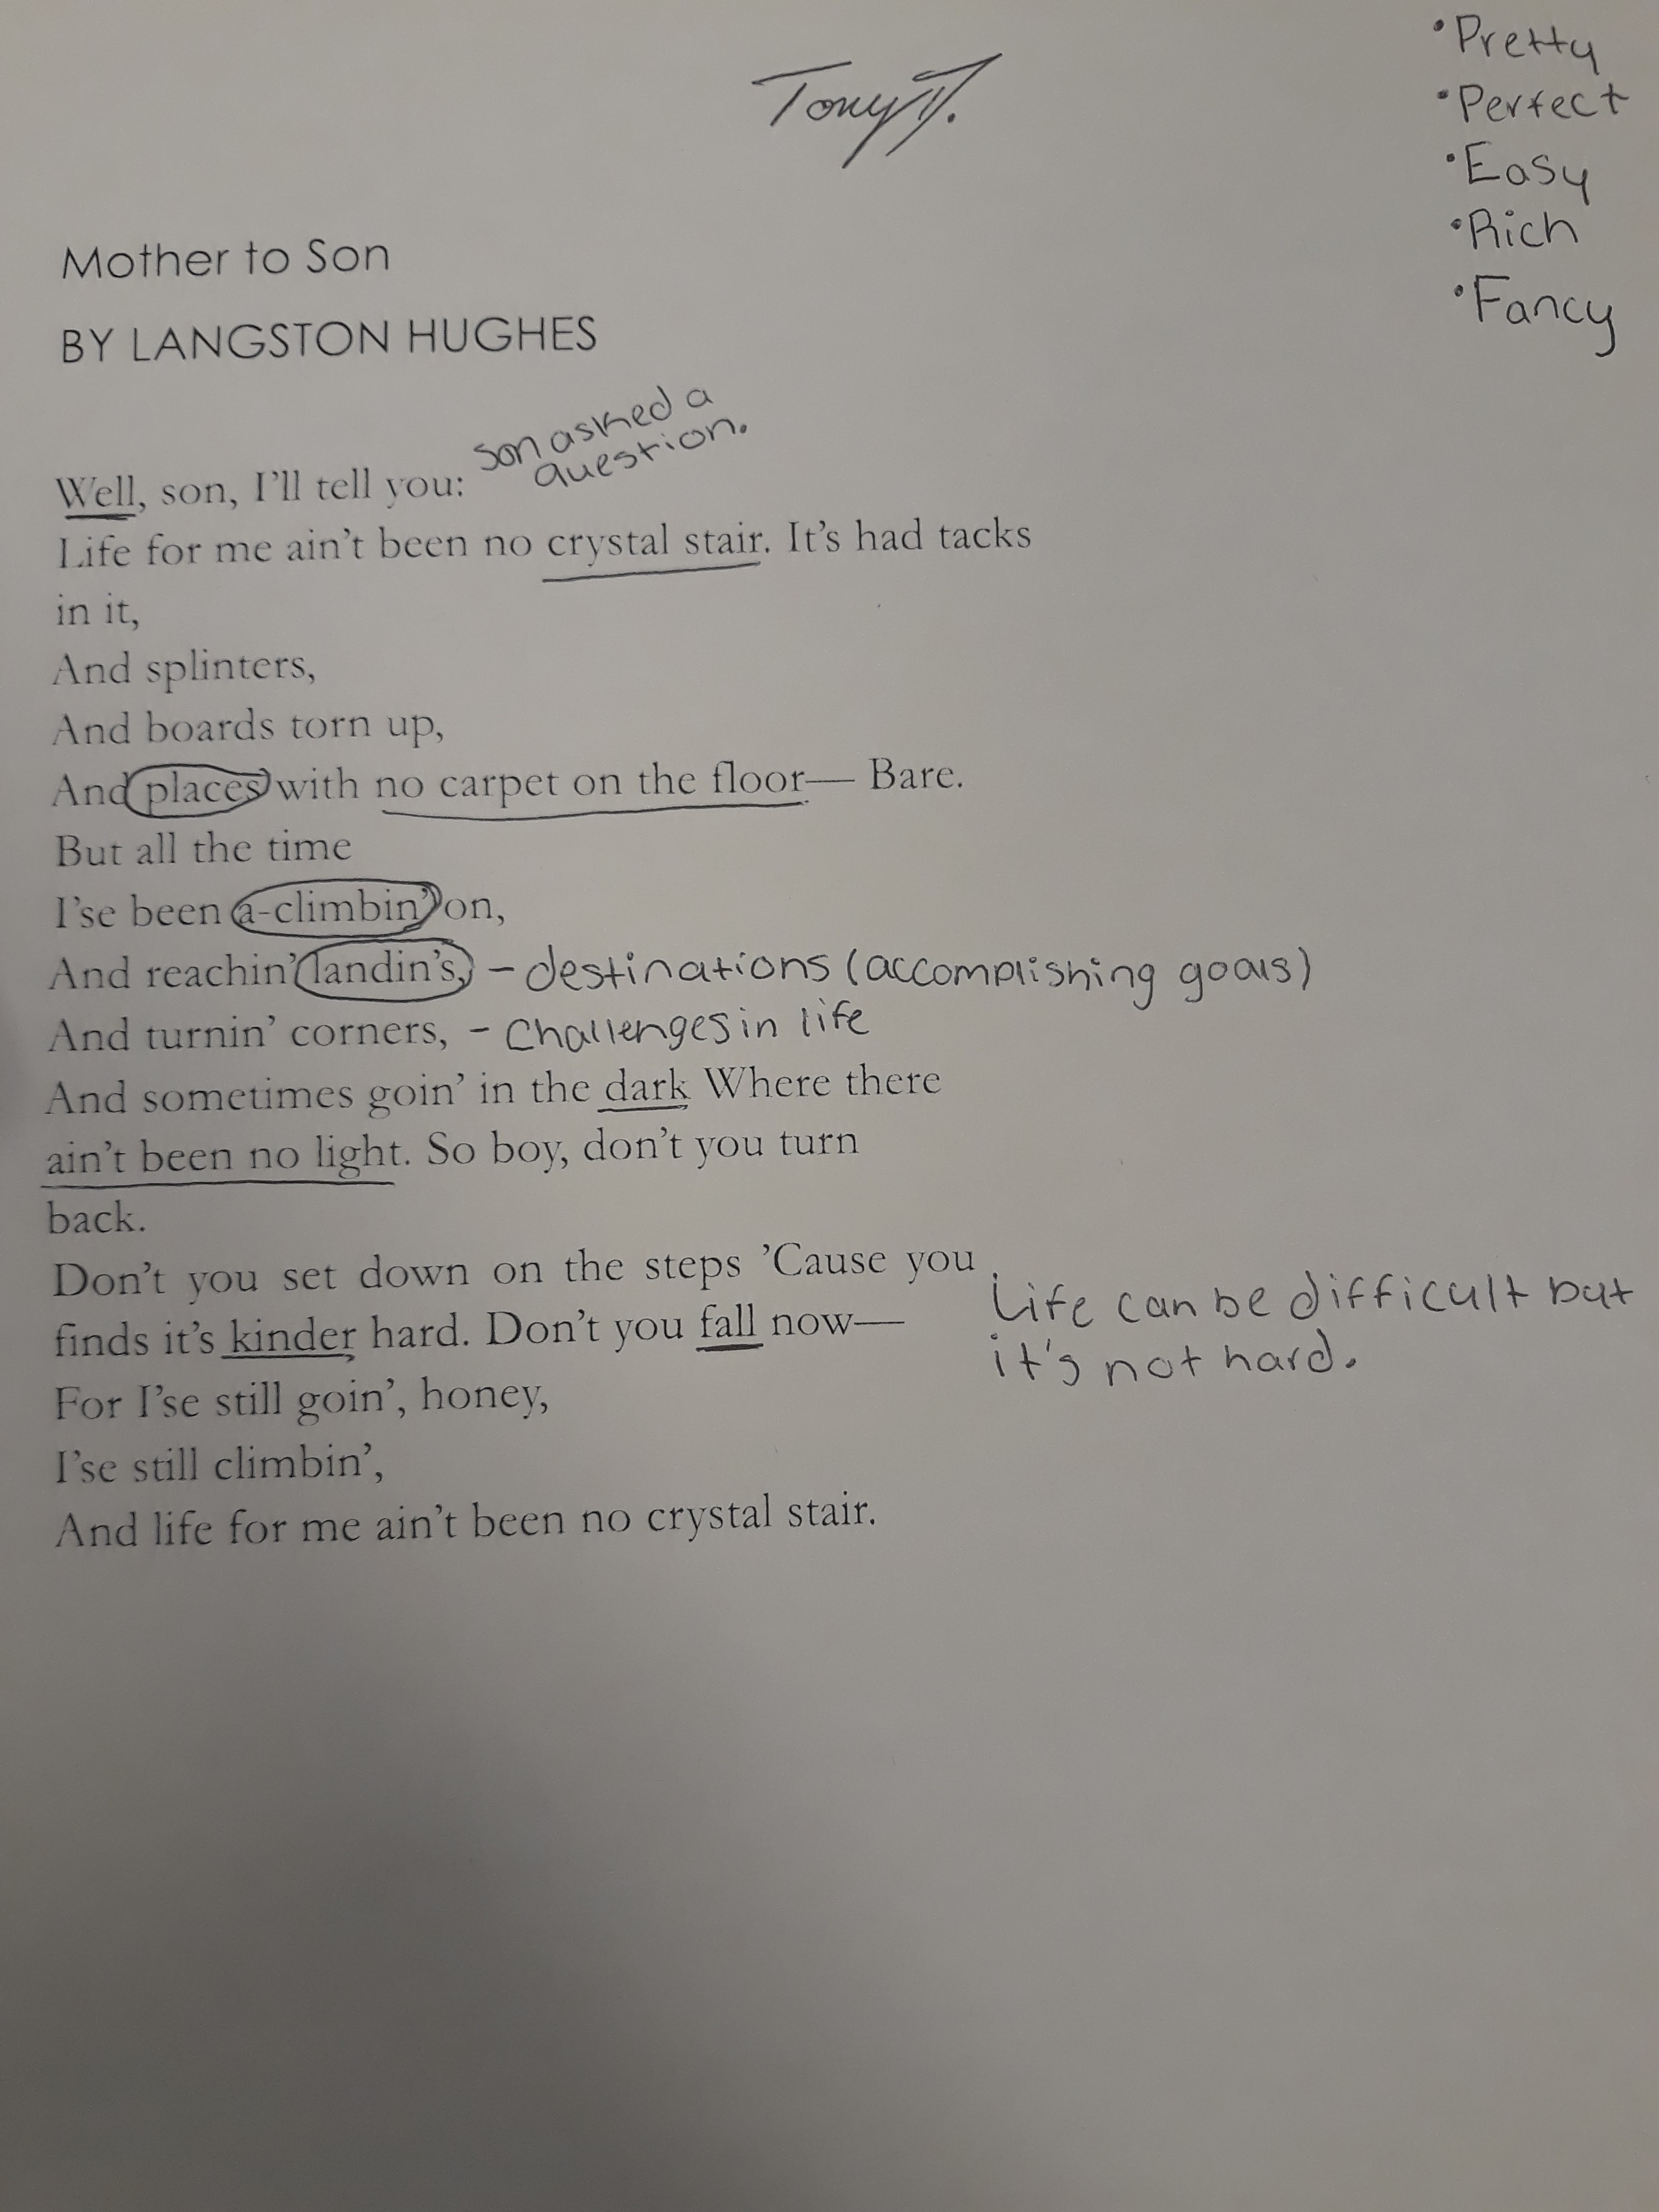 Tony D.
• Pretty
• Perfect
• Easy
• Rich
• Fancy
Mother to Son
BY LANGSTON HUGHES
son asked a
question.
Well, son, I'll tell you:
Life for me ain't been no crystal stair. It's had tacks
in it,
And splinters,
And boards torn up,
And places with no carpet on the floor— Bare.
But all the time
I'se been a-climbin' on,
And reachin' landin's, - destinations (accomplishing goals)
And turnin' corners, - Challenges in life
And sometimes goin' in the dark Where there
ain't been no light. So boy, don't you turn
back.
Don't you set down on the steps 'Cause you
finds it's kinder hard. Don't you fall now—
Life can be difficult but
it's not hard.
For I'se still goin', honey,
I'se still climbin',
And life for me ain't been no crystal stair.